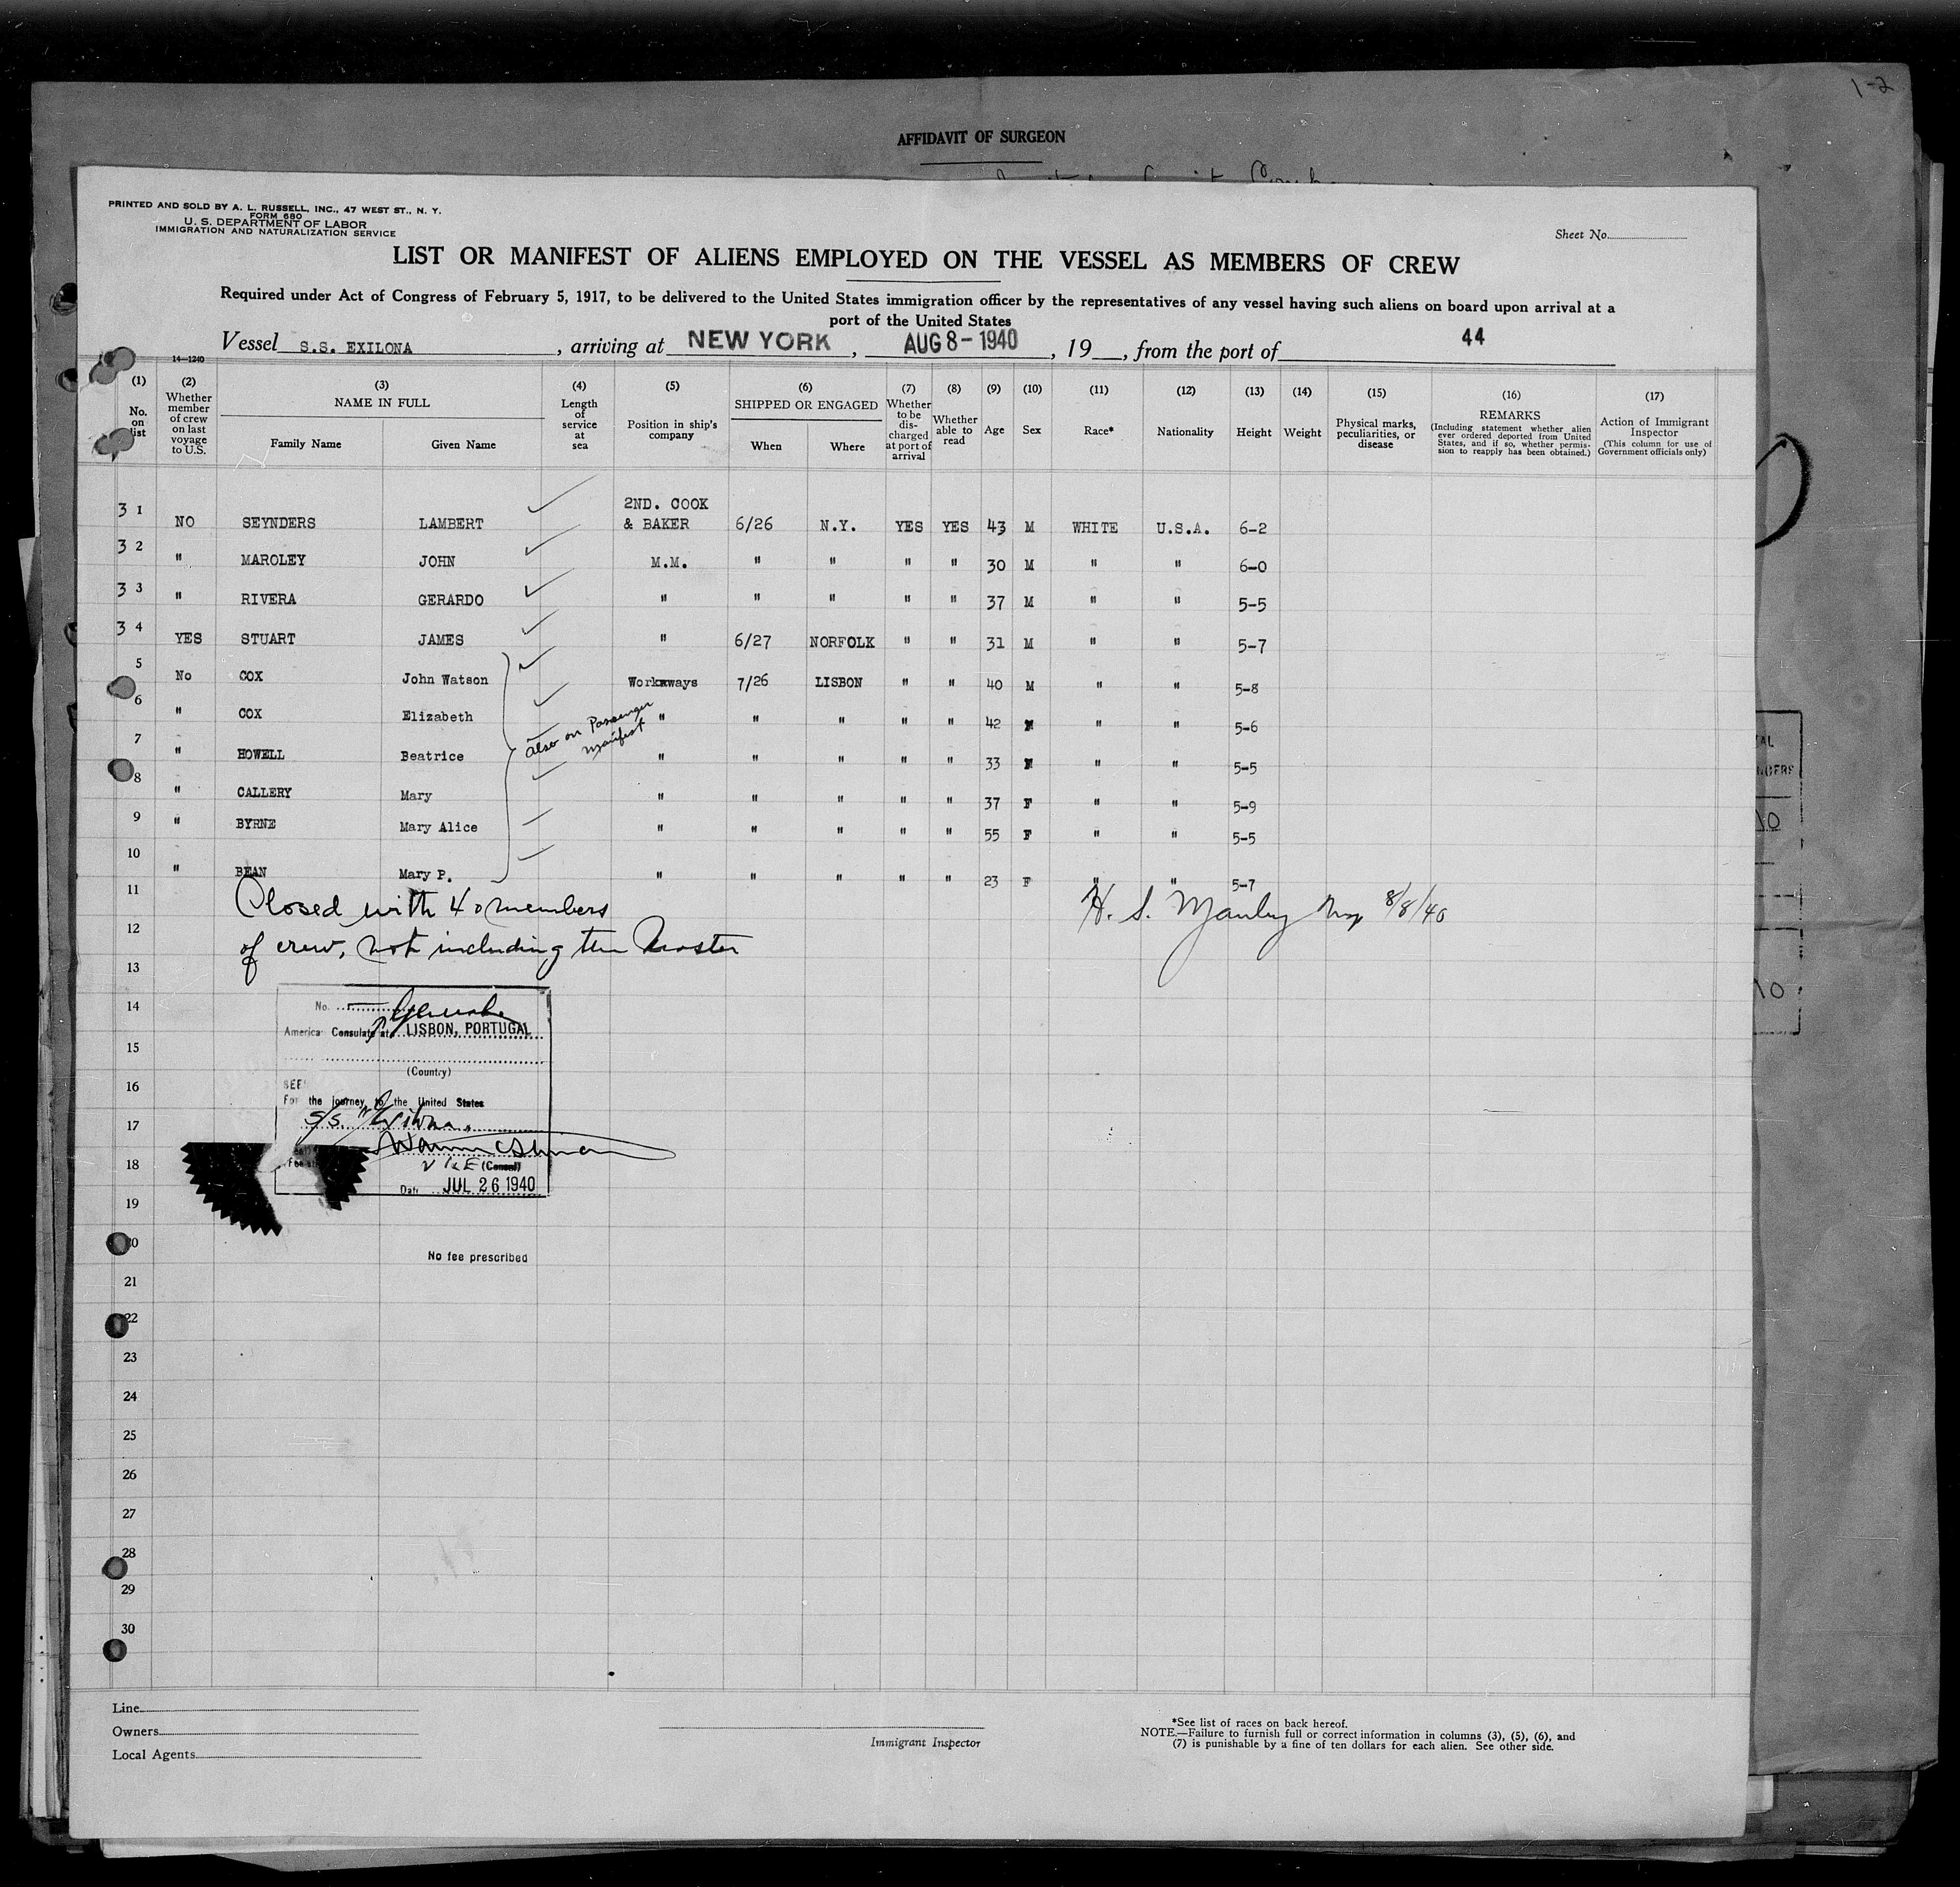 1-2
AFFIDAVIT OF SURGEON
PRINTED AND SOLD BY A. L. RUSSELL, INC., 47 WEST ST., N. Y.
FORM 680
U. S. DEPARTMENT OF LABOR
IMMIGRATION AND NATURALIZATION SERVICE
Sheet No.
LIST OR MANIFEST OF ALIENS EMPLOYED ON THE VESSEL AS MEMBERS OF CREW
Required under Act of Congress of February 5, 1917, to be delivered to the United States immigration officer by the representatives of any vessel having such aliens on board upon arrival at a
port of the United States
Vessel S.S. EXILONA, arriving at NEW YORK, AUG 8-1940, 19__, from the port of 44
14—1240
(1) No. on list
(2) Whether member of crew on last voyage to U.S.
(3) NAME IN FULL
Family Name Given Name
(4) Length of service at sea
(5) Position in ship's company
(6) SHIPPED OR ENGAGED
When Where
(7) Whether to be discharged at port of arrival
(8) Whether able to read
(9) Age
(10) Sex
(11) Race*
(12) Nationality
(13) Height
(14) Weight
(15) Physical marks, peculiarities, or disease
(16) REMARKS
(Including statement whether alien ever ordered deported from United States, and if so, whether permission to reapply has been obtained.)
(17) Action of Immigrant Inspector
(This column for use of Government officials only)
31 NO SEYNDERS LAMBERT 2ND. COOK & BAKER 6/26 N.Y. YES YES 43 M WHITE U.S.A. 6-2
32 " MAROLEY JOHN M.M. " " " " 30 M " " 6-0
33 " RIVERA GERARDO " " " " " 37 M " " 5-5
34 YES STUART JAMES " 6/27 NORFOLK " " 31 M " " 5-7
5 No COX John Watson Workaways 7/26 LISBON " " 40 M " " 5-8
6 " COX Elizabeth " " " " " 42 " " 5-6
Also on Passenger
Manifest
7 " HOWELL Beatrice " " " " " 33 " " 5-5
8 " CALLERY Mary " " " " " 37 F " " 5-9
9 " BYRNE Mary Alice " " " " " 55 F " " 5-5
10 " BEAN Mary P. " " " " " 23 F " " 5-7
11 Closed with 40 members
H. S. Manley Insp 8/8/40
12 of crew, not including the Master
13
14 No.
American Consulate at LISBON, PORTUGAL
15
(Country)
16 SEEN
For the journey to the United States
17 S/S "Exilona"
18 VICE (Consul)
Date JUL 26 1940
19
20
No fee prescribed
21
22
23
24
25
26
27
28
29
30
Line
Owners
Local Agents
Immigrant Inspector
*See list of races on back hereof.
NOTE.—Failure to furnish full or correct information in columns (3), (5), (6), and
(7) is punishable by a fine of ten dollars for each alien. See other side.